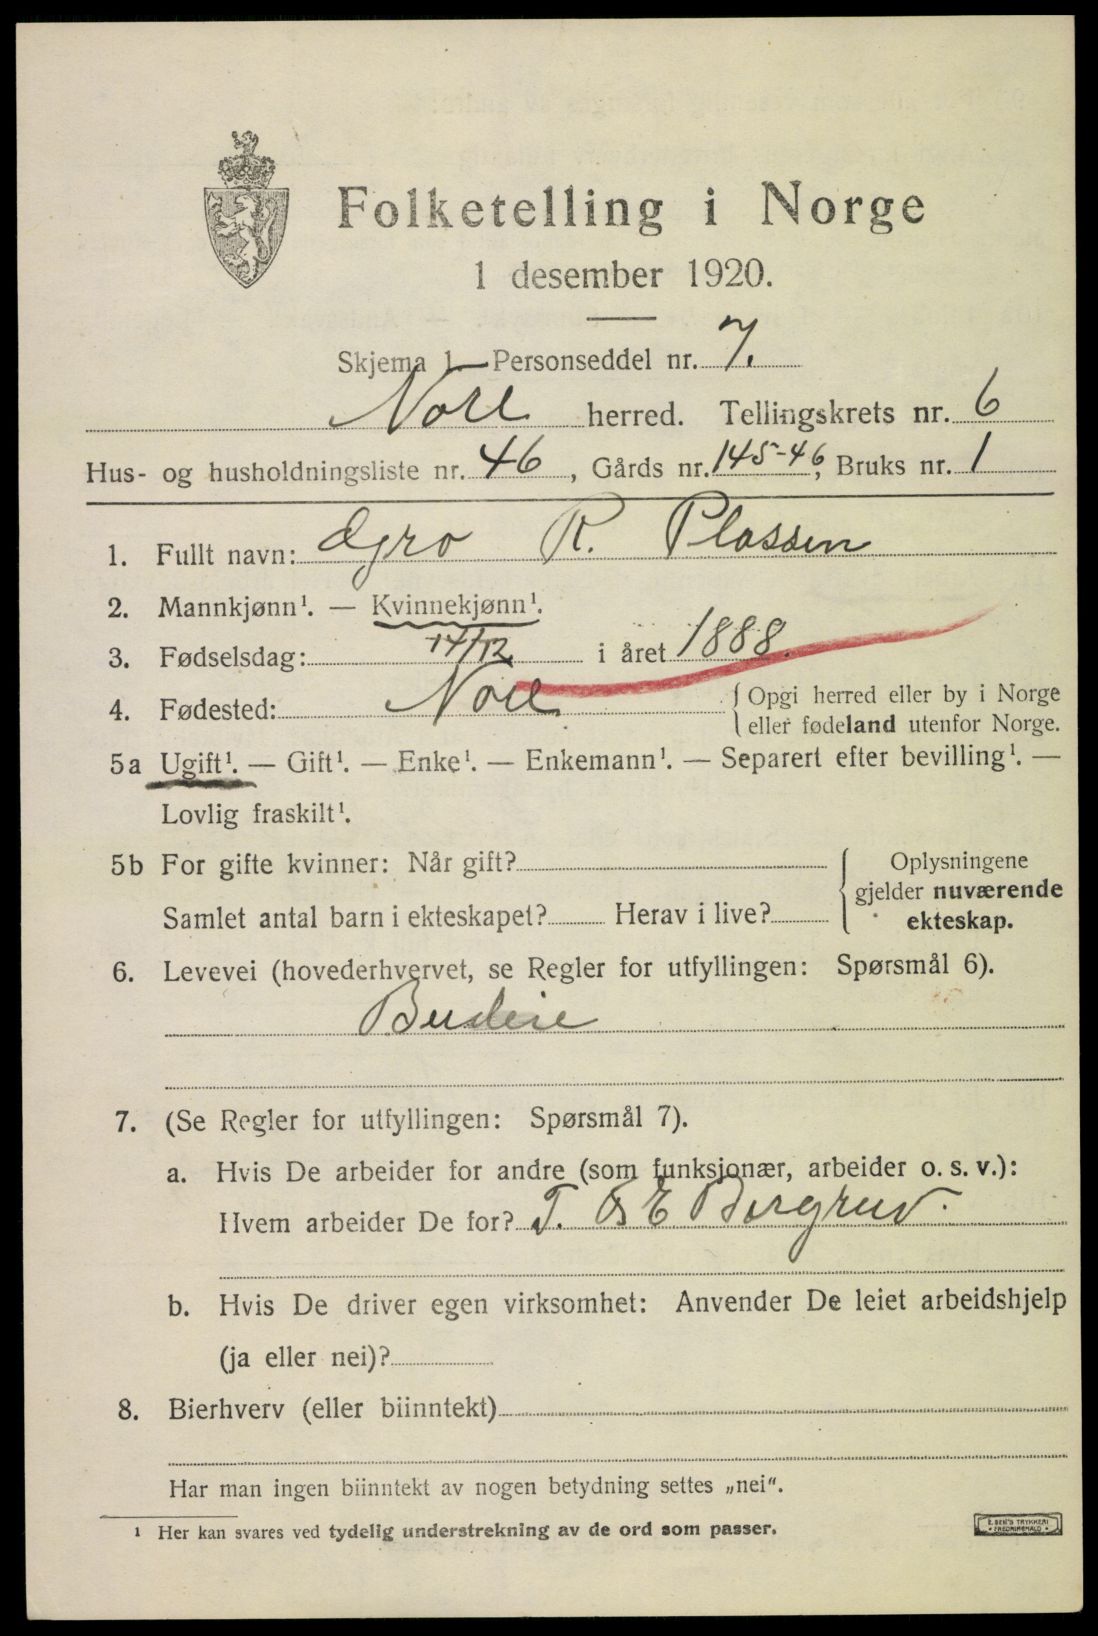 Folketelling i Norge
1 desember 1920.
Skjema 1 — Personseddel nr. 7.
Noll herred. Tellingskrets nr. 6
Hus- og husholdningsliste nr. 46, Gårds nr. 145-46, Bruks nr. 1
1. Fullt navn: Gro R. Plassen
2. Mannkjønn¹. — Kvinnekjønn¹.
3. Fødselsdag: 14/12 i året 1888.
4. Fødested: Noll { Opgi herred eller by i Norge
eller fødeland utenfor Norge.
5a Ugift¹. — Gift¹. — Enke¹. — Enkemann¹. — Separert efter bevilling¹. —
Lovlig fraskilt¹.
5b For gifte kvinner: Når gift?
Samlet antal barn i ekteskapet? Herav i live?
{ Oplysningene
gjelder nuværende
ekteskap.
6. Levevei (hovederhvervet, se Regler for utfyllingen: Spørsmål 6).
Budeie
7. (Se Regler for utfyllingen: Spørsmål 7).
a. Hvis De arbeider for andre (som funksjonær, arbeider o. s. v.):
Hvem arbeider De for? T. E Bergrud.
b. Hvis De driver egen virksomhet: Anvender De leiet arbeidshjelp
(ja eller nei)?
8. Bierhverv (eller biinntekt)
Har man ingen biinntekt av nogen betydning settes „nei“.
¹ Her kan svares ved tydelig understrekning av de ord som passer.
E. SEM'S TRYKKERI
FREDRIKSHALD